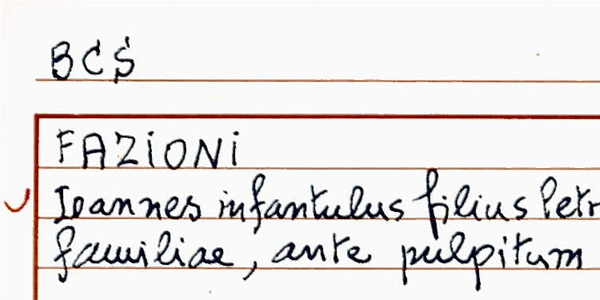 BCS
FAZIONI
Ioannes infantulus filius Petr
familiae, ante pulpitum